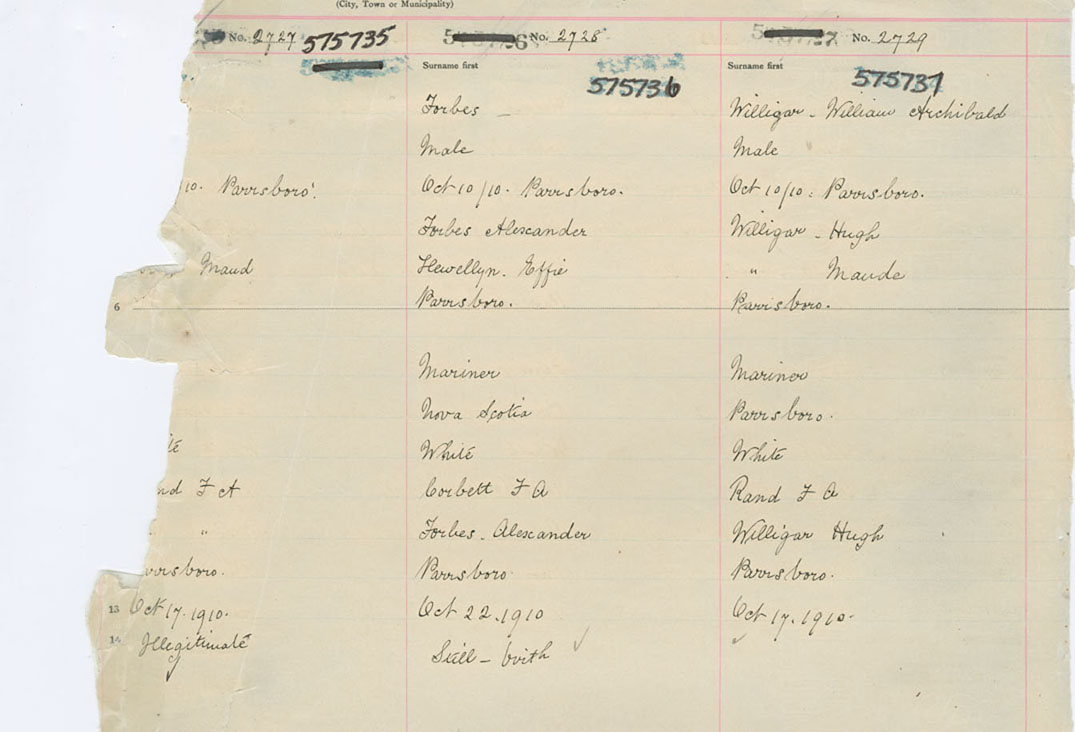 (City, Town or Municipality)
No. 2727 575735
No. 2728
No. 2729
Surname first 575736
Surname first 575737
Forbes –
Willigar - William Archibald
Male
Male
10. Parrsboro'.
Oct 10/10. Parrsboro.
Oct 10/10: Parrsboro.
Forbes Alexander
Willigar - Hugh
Maud
Llewellyn. Effie
" Maude
6
Parrsboro.
Parrsboro.
Mariner
Mariner
Nova Scotia
Parrsboro.
White
White
nd F A
Corbett F A
Rand F A
"
Forbes. Alexander
Willigar Hugh
rrsboro.
Parrsboro.
Parrsboro.
13 Oct 17. 1910.
Oct 22. 1910
Oct 17. 1910.
14 Illegitimate
Still - birth